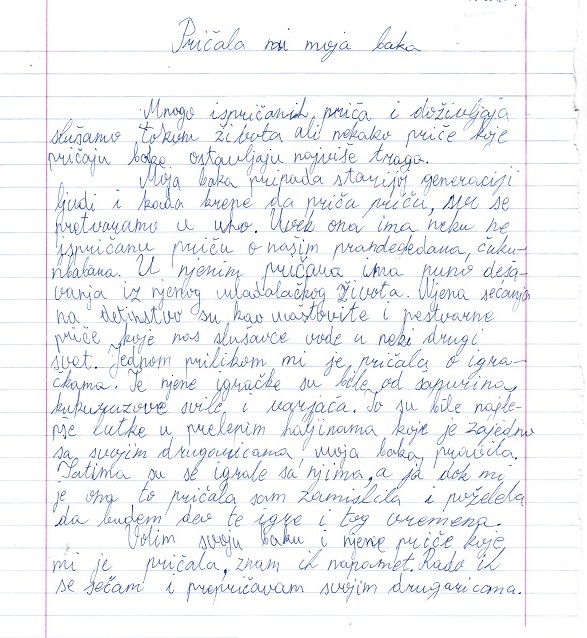 Pričala mi moja baka
Mnogo ispričanih priča i doživljaja
slušamo tokom života ali nekako priče koje
pričaju bake ostavljaju najviše traga.
Moja baka pripada starijoj generaciji
ljudi i kada krene da priča priču, svi se
pretvaramo u uho. Uvek ona ima neku ne
ispričanu priču o našim prandegedana, čuku-
nbabana. U njenim pričama ima puno deša-
vanja iz njenog mladalačkog života. Njena sećanja
na detinstvo su kao maštovite i nestvarne
priče koje nas slušaoce vode u neki drugi
svet. Jednom prilikom mi je pričala o igra-
čkama. Te njene igračke su bile od sapurina,
kukuruzove svile i varjača. To su bile najle-
pše lutke u prelepim haljinama koje je zajedno
sa svojim drugaricama moja baka pravila.
Satima su se igrale sa njima, a ja dok mi
je ona to pričala sam zamislila i poželela
da budem deo te igre i tog vremena.
Volim svoju baku i njene priče koje
mi je pričala, znam ih napamet. Rado ih
se sečam i prepričavam svojim drugaricama.